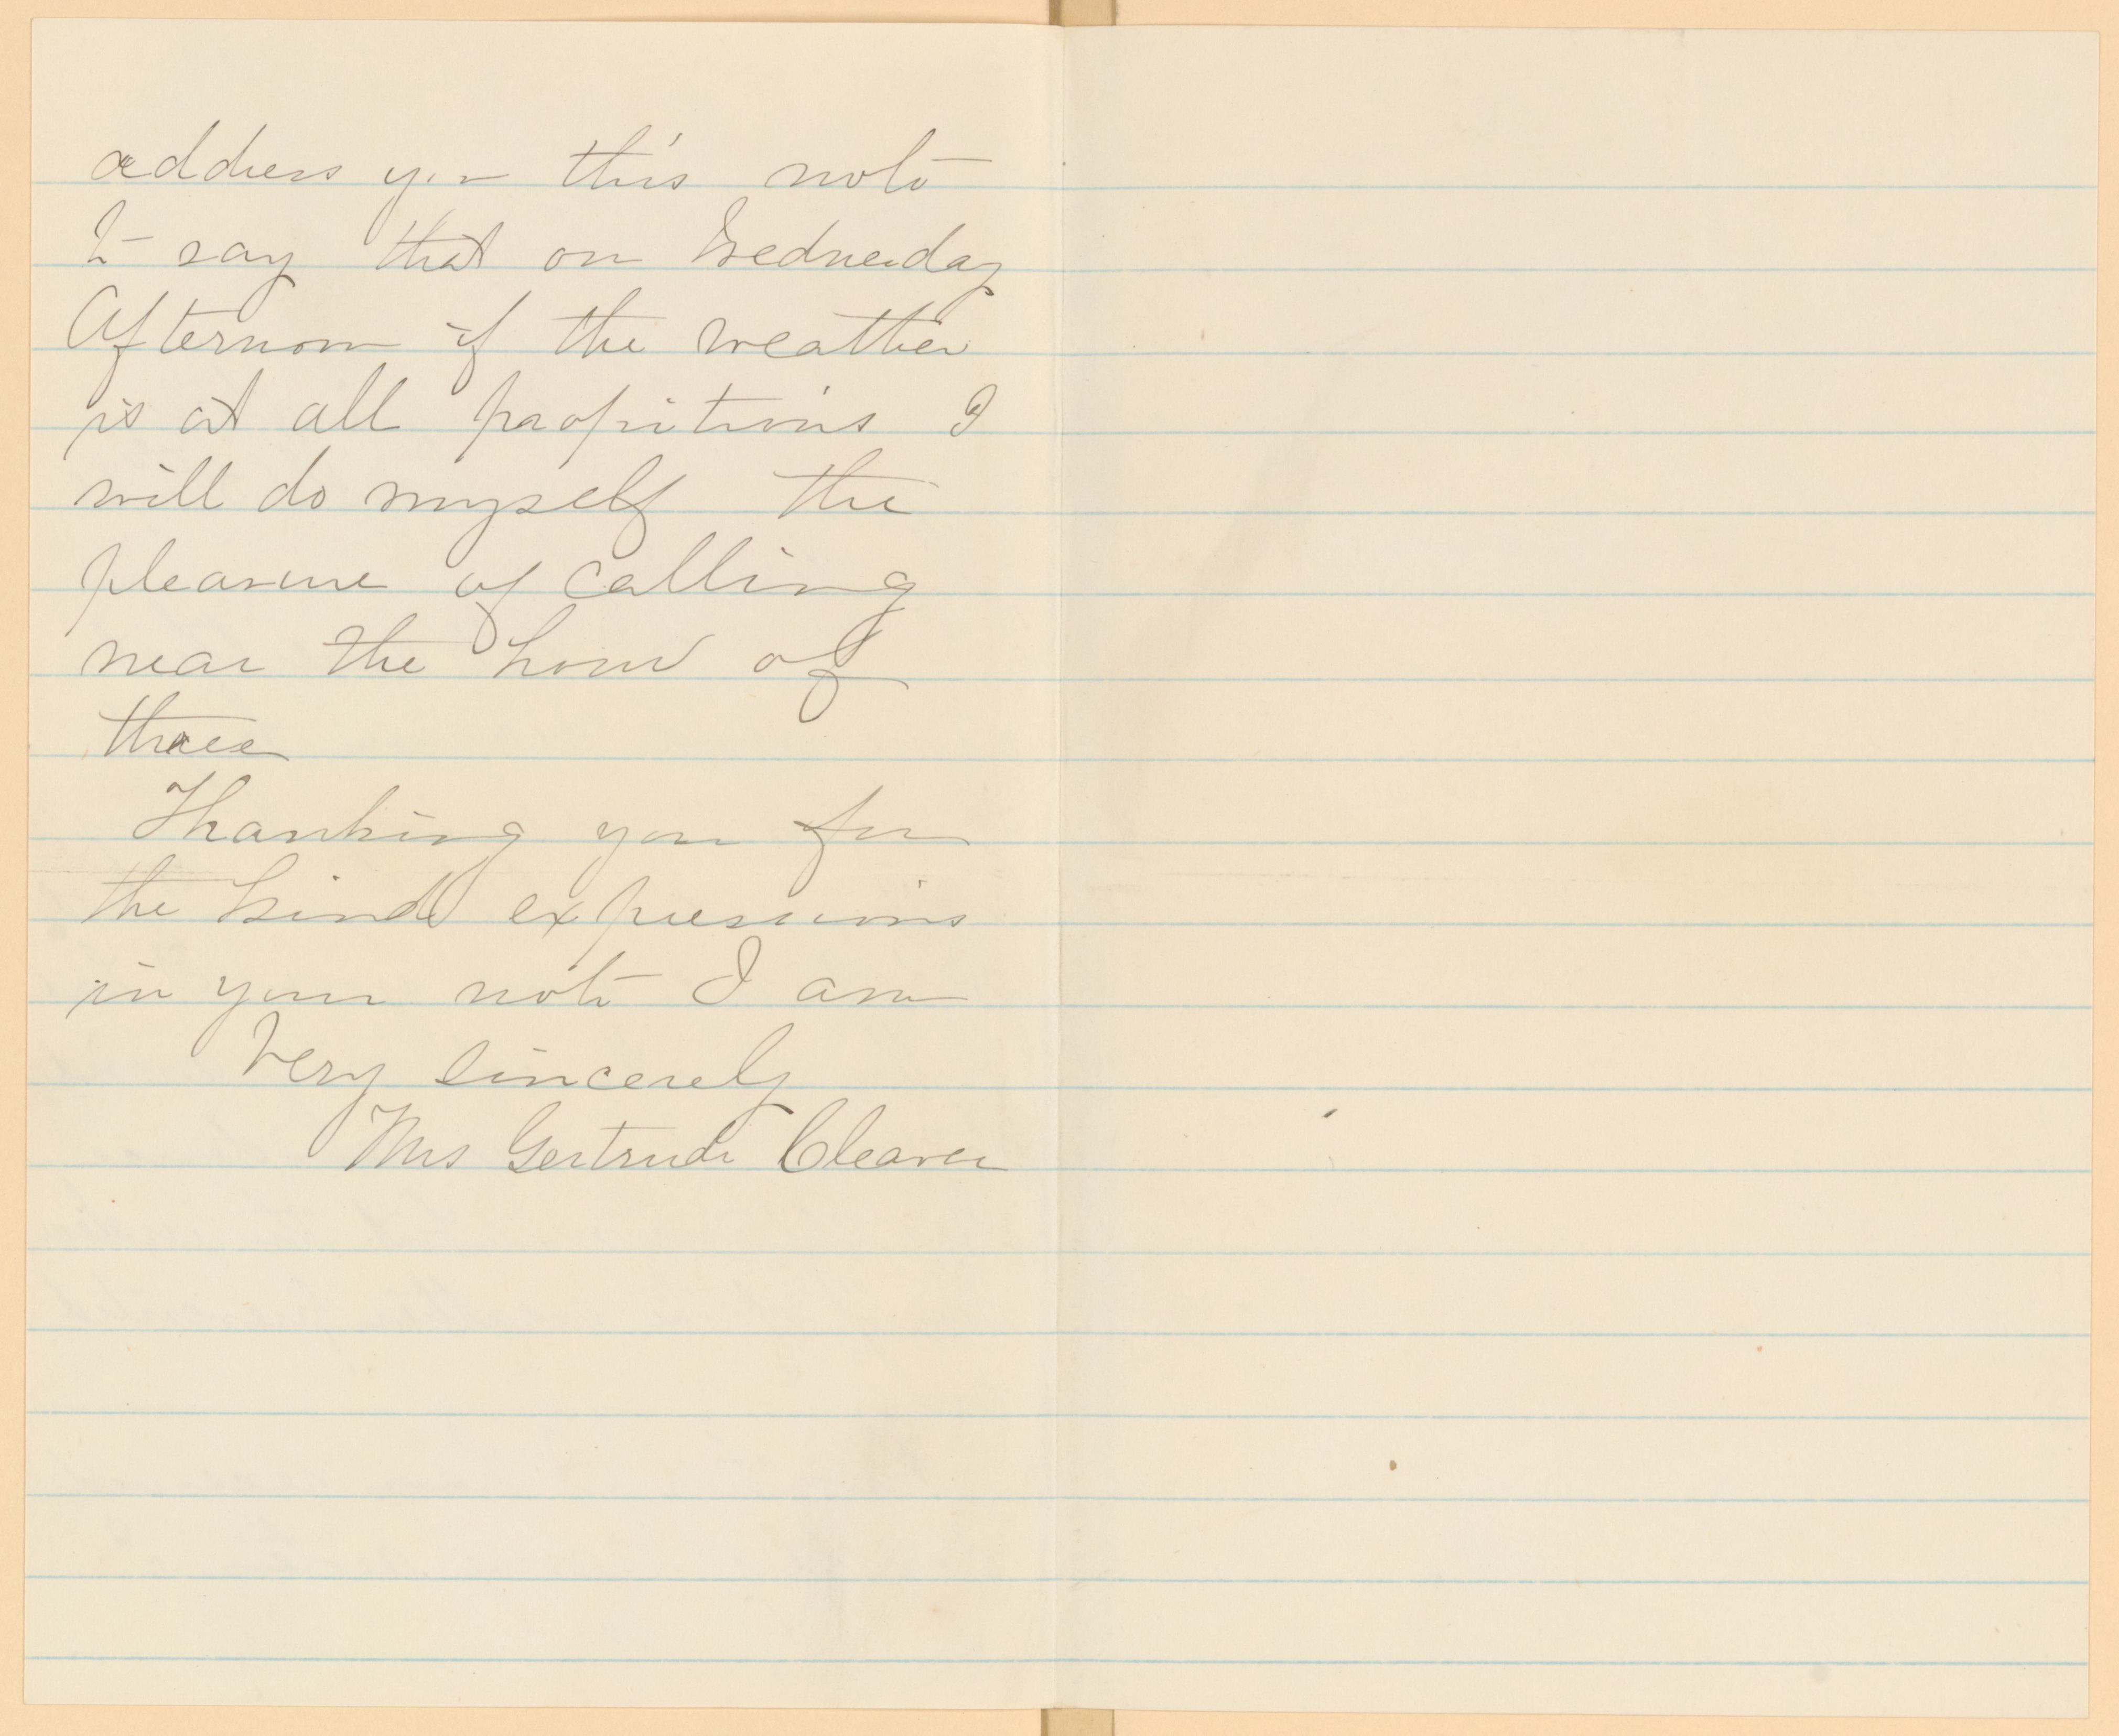 address you this note
to say that on Wednesday
Afternoon if the weather
is at all propitious I
will do myself the
pleasure of calling
near the hour of
three
Thanking you for
the kind expressions
in your note I am
Very Sincerely
Mrs Gertrude Cleaver